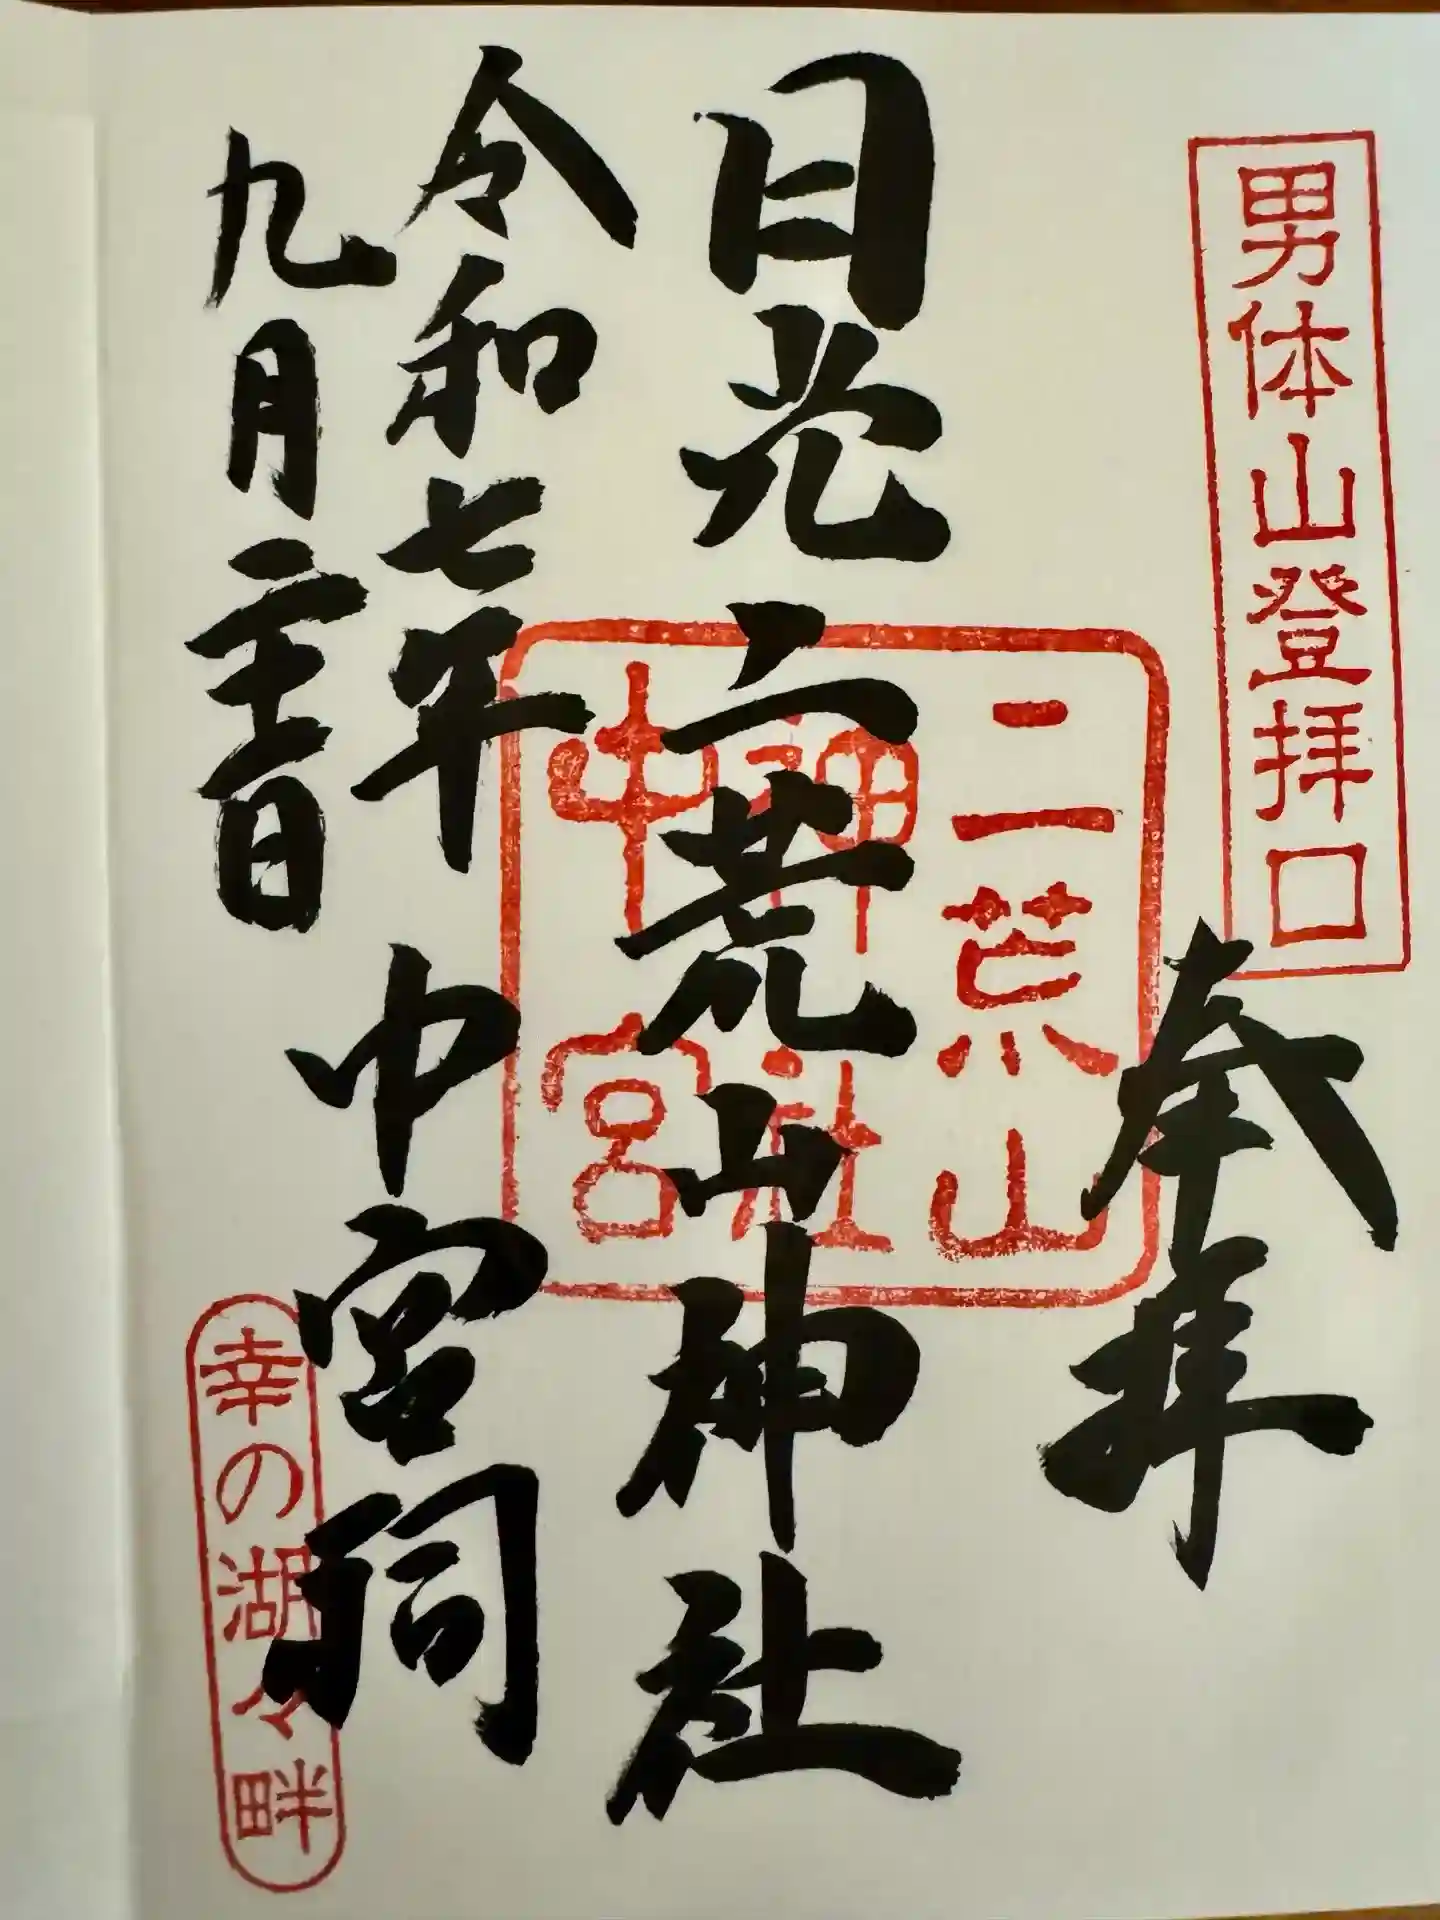 男体山登拝口
奉拝
日光二荒山神社
二荒山
神社
中宮
令和七年
中宮祠
九月
幸の湖々畔